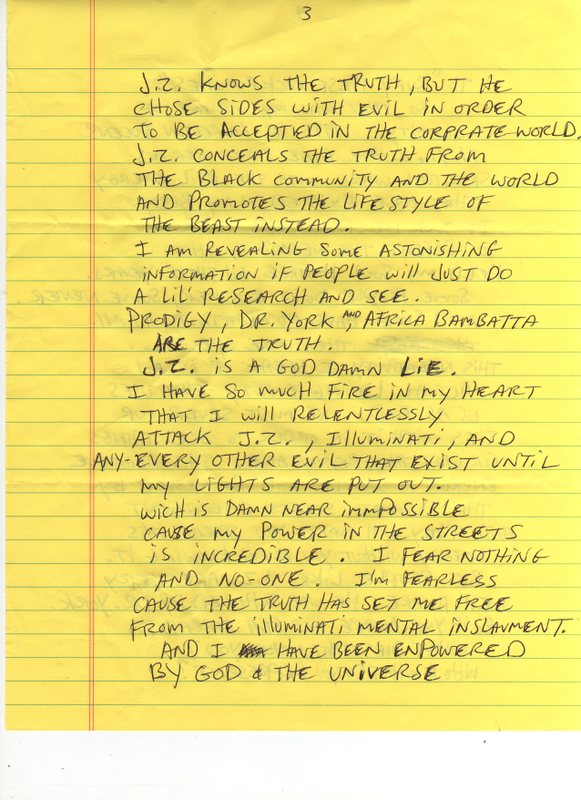 3
J.Z. KNOWS THE TRUTH, BUT HE
CHOSE SIDES WITH EVIL IN ORDER
TO BE ACCEPTED IN THE CORPRATE WORLD.
J.Z. CONCEALS THE TRUTH FROM
THE BLACK COMMUNITY AND THE WORLD
AND PROMOTES THE LIFE STYLE OF
THE BEAST INSTEAD.
I AM REVEALING SOME ASTONISHING
INFORMATION IF PEOPLE WILL JUST DO
A LIL' RESEARCH AND SEE.
PRODIGY, DR. YORK AND AFRICA BAMBATTA
ARE THE TRUTH.
J.Z. IS A GOD DAMN LIE.
I HAVE SO MUCH FIRE IN MY HEART
THAT I WILL RELENTLESSLY
ATTACK J.Z., ILLUMINATI, AND
ANY-EVERY OTHER EVIL THAT EXIST UNTIL
MY LIGHTS ARE PUT OUT.
WICH IS DAMN NEAR IMMPOSSIBLE
CAUSE MY POWER IN THE STREETS
IS INCREDIBLE. I FEAR NOTHING
AND NO-ONE. I'M FEARLESS
CAUSE THE TRUTH HAS SET ME FREE
FROM THE ILLUMINATI MENTAL INSLAVMENT.
AND I HAVE BEEN ENPOWERED
BY GOD & THE UNIVERSE